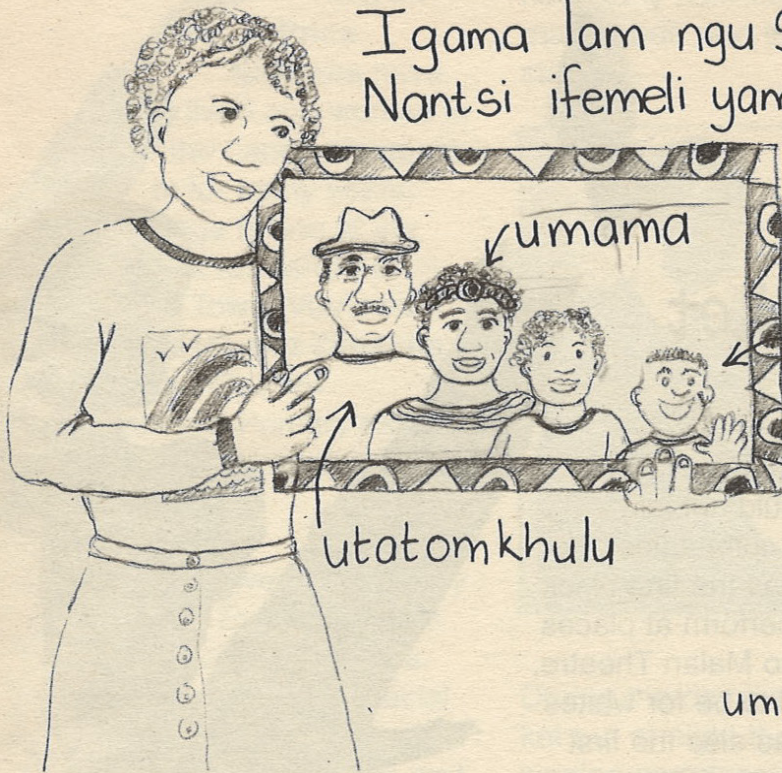 Igama lam ngu S
Nantsi ifemeli yam
umama
utatomkhulu
um